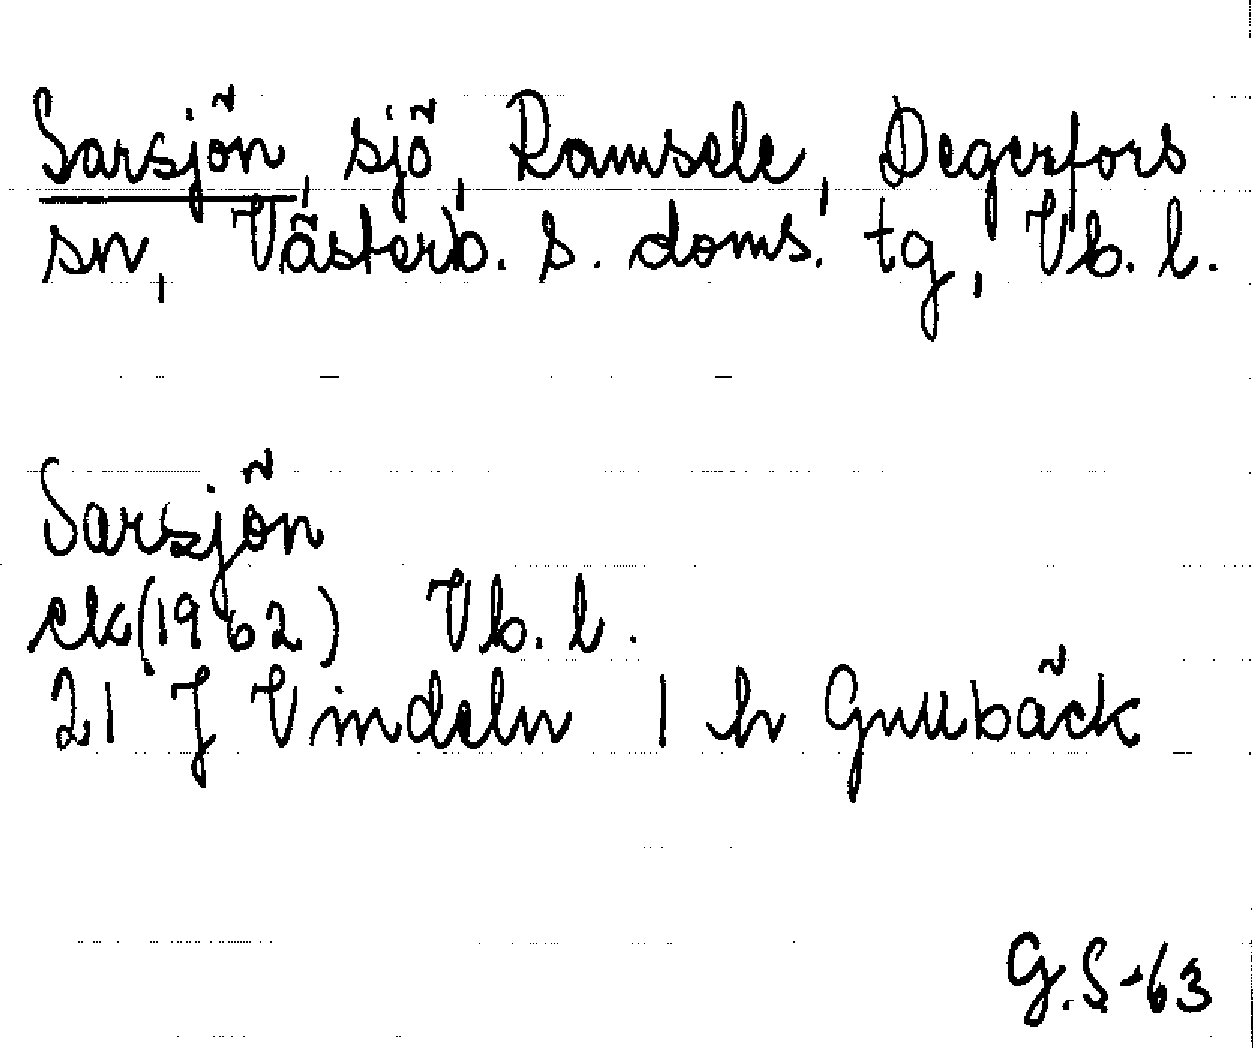 Sarsjön, sjö, Ramsele, Degerfors
sn, Västerb. s. doms. tg, Vb. l.
Sarsjön
ek(1962) Vb. l.
21 J Vindeln 1 h Gullbäck
G.S-63